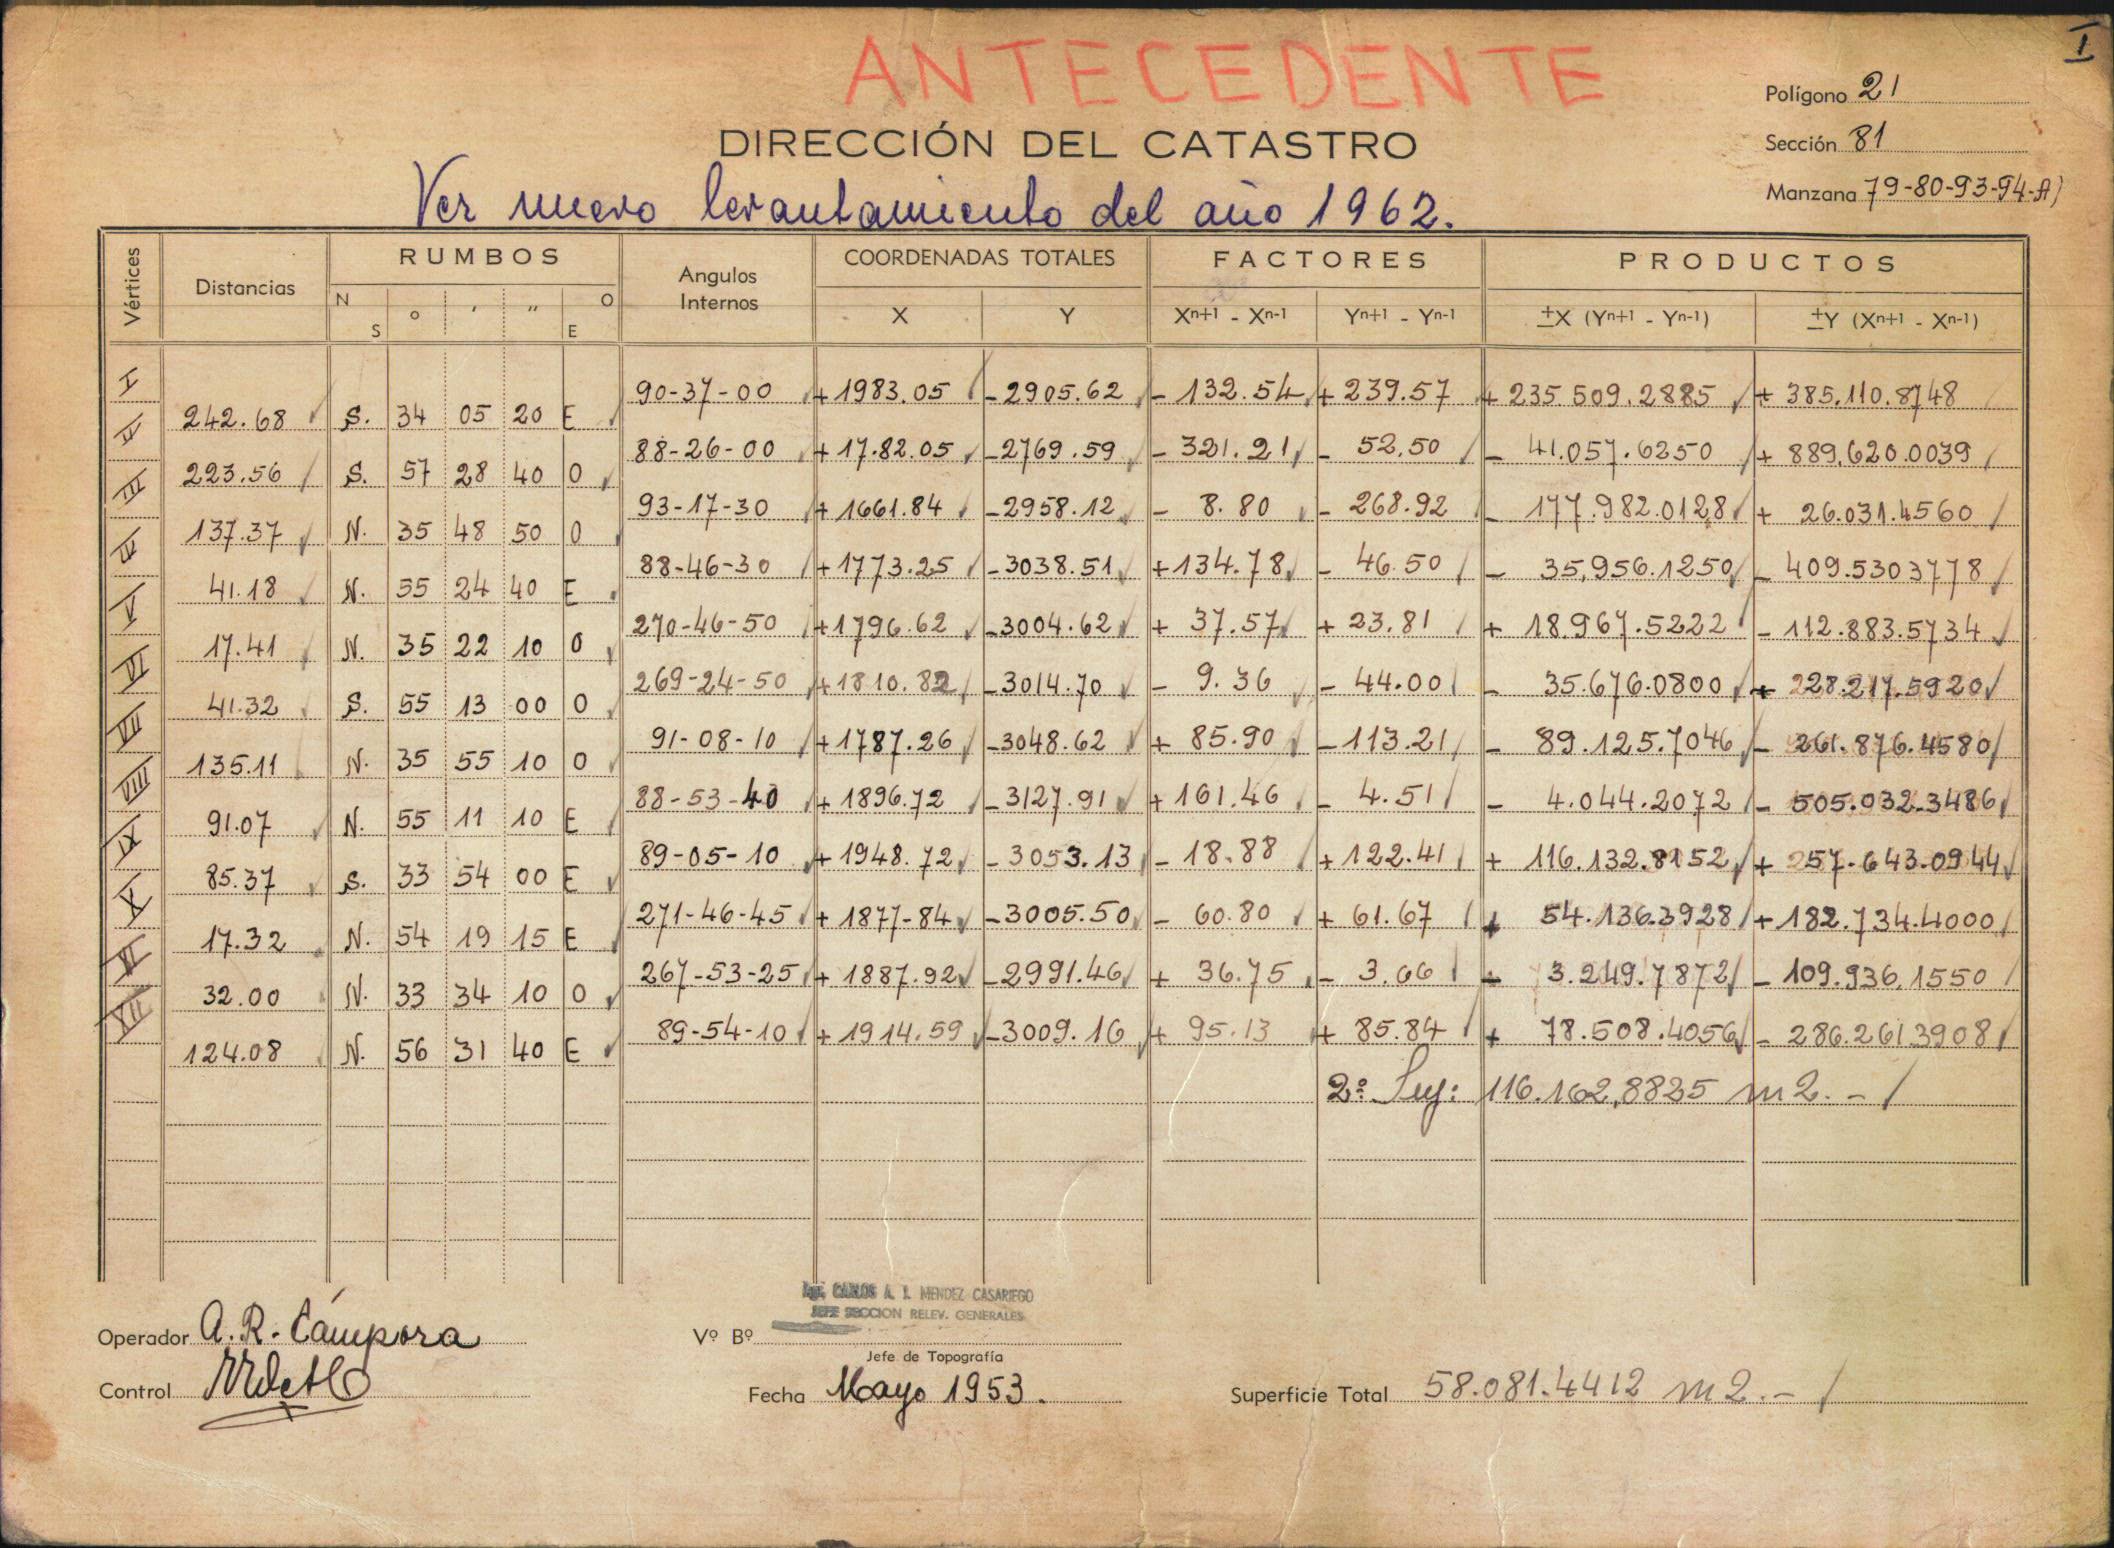 I
ANTECEDENTE
Polígono 21
DIRECCIÓN DEL CATASTRO
Sección 81
Manzana 79-80-93-94-A)
Ver nuevo levantamiento del año 1962.
Vértices Distancias RUMBOS Angulos Internos COORDENADAS TOTALES FACTORES PRODUCTOS
N S ° ' " O E X Y Xn+1 - Xn-1 Yn+1 - Yn-1 ±X (Yn+1 - Yn-1) ±Y (Xn+1 - Xn-1)
I 90-37-00 +1983.05 -2905.62 - 132.54 + 239.57 + 235.509.2885 + 385.110.8748
242.68 S. 34 05 20 E
II 88-26-00 +17.82.05 -2769.59 - 321.21 - 52.50 - 41.057.6250 + 889.620.0039
223.56 S. 57 28 40 O
III 93-17-30 +1661.84 -2958.12 - 8.80 - 268.92 - 177.982.0128 + 26.031.4560
137.37 N. 35 48 50 O
IV 88-46-30 +1773.25 -3038.51 +134.78 - 46.50 - 35.956.1250 - 409.5303778
41.18 N. 55 24 40 E
V 270-46-50 +1796.62 -3004.62 + 37.57 + 23.81 + 18.967.5222 - 112.883.5734
17.41 N. 35 22 10 O
VI 269-24-50 +1810.82 -3014.70 - 9.36 - 44.00 - 35.676.0800 + 228.217.5920
41.32 S. 55 13 00 O
VII 91-08-10 +1787.26 -3048.62 + 85.90 - 113.21 - 89.125.7046 - 261.876.4580
135.11 N. 35 55 10 O
VIII 88-53-40 +1896.72 -3127.91 + 161.46 - 4.51 - 4.044.2072 - 505.032.3486
91.07 N. 55 11 10 E
IX 89-05-10 +1948.72 -3053.13 - 18.88 + 122.41 + 116.132.8152 + 257.643.0944
85.37 S. 33 54 00 E
X 271-46-45 +1877-84 -3005.50 - 60.80 + 61.67 + 54.136.3928 + 182.734.4000
17.32 N. 54 19 15 E
XI 267-53-25 +1887.92 -2991.46 + 36.75 - 3.66 - 3.249.7872 - 109.936.1550
32.00 N. 33 34 10 O
XII 89-54-10 +1914.59 -3009.16 + 95.13 + 85.84 + 78.508.4056 - 286.261.3908
124.08 N. 56 31 40 E
2ª Sup: 116.162,8825 m2.-
Ing. CARLOS A. J. MENDEZ CASARIEGO
JEFE SECCION RELEV. GENERALES
Operador A. R. Cámpora
Vº Bº
Jefe de Topografía
Control
Fecha Mayo 1953.
Superficie Total 58.081.4412 m2.-